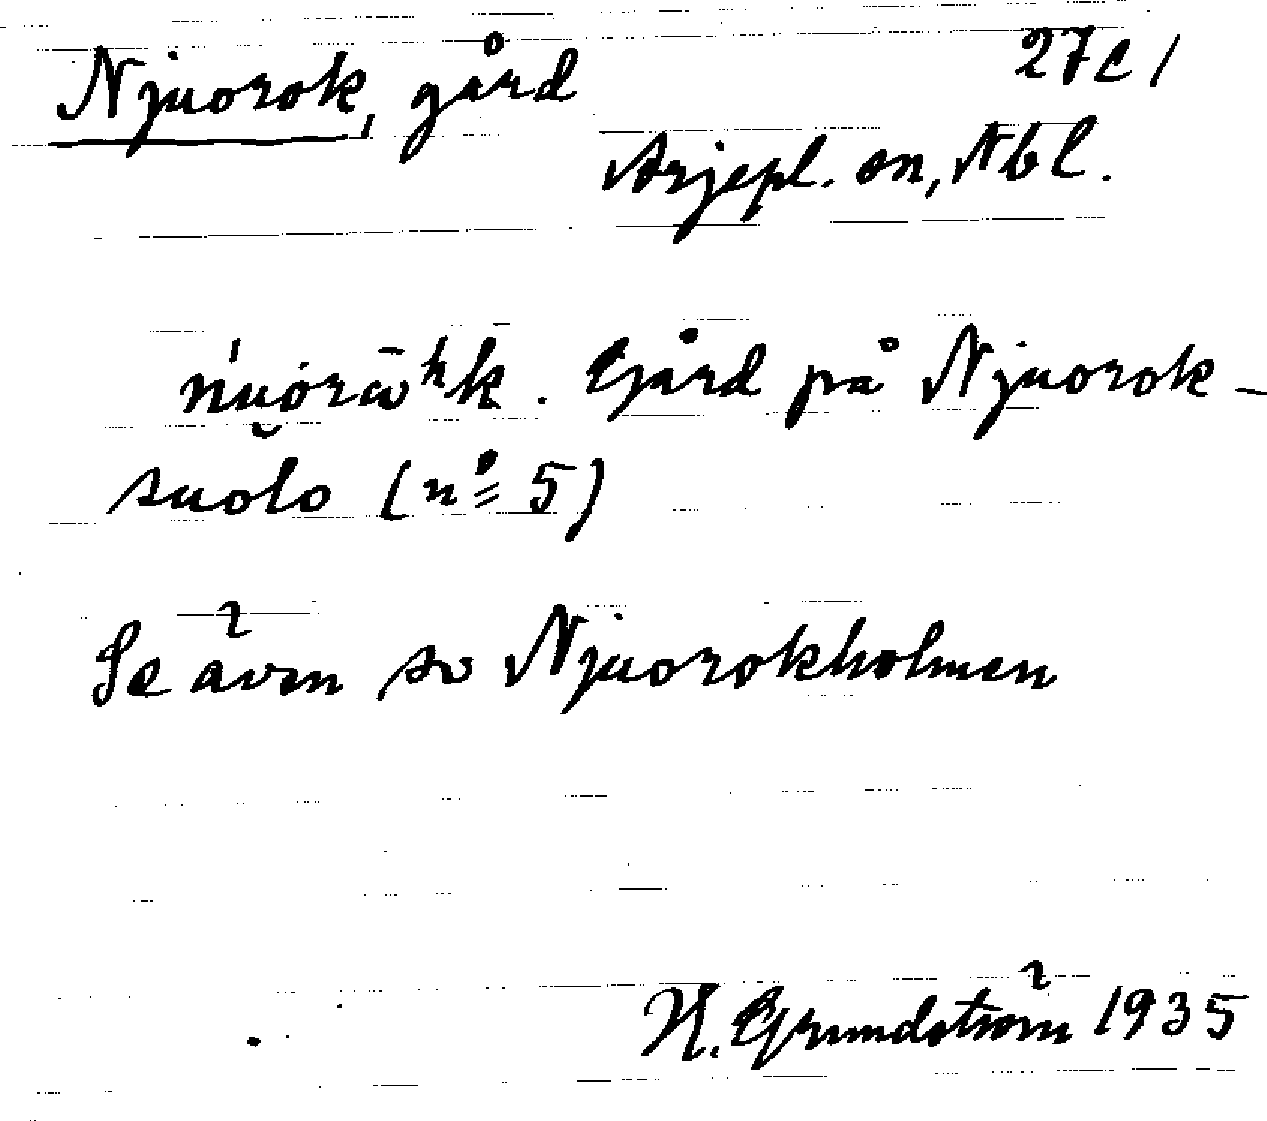 Njuorok, gård 27c1
Arjepl. sn, Nbl.
Gård på Njuorok-
suolo (nº 5)
Se även so Njuorokholmen
H. Grundström 1935